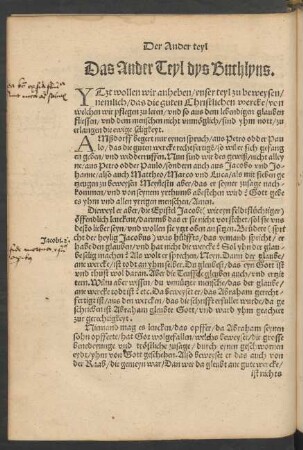 Der Ander teyl
Das Ander Teyl dys Buchlyns.
YTzt wollen wir anheben / vnser teyl zu beweysen /
nemlich / das die guten Christlichen wercke / von
welchen wir pflegen zu leren / vnd so aus dem lebendigen glauben
fliessen / vnd den menschen nicht vnmöglich / sind yhm nött / zu
erlangen die ewige seligkeyt.
AMsdorff begert nur einen spruch / aus Petro odder Pau
lo / das die gute werck zur seligkeyt nöttig / so wil er sich gefang
en geben / vnd widderruffen. Nun sind wir des gewis / nicht alley
ne / aus Petro odder Paulo / sondern auch aus Jacobo vnd Jo=
hanne / also auch Mattheo / Marco vnd Luca / als mit sieben ge
zeugen zu beweysen
aber / das er seyner zusage nach=
kommen / vnd von seynem yrthumb abstehen wird / Gott gebe
es yhm vnd allen yrrigen menschen / Amen.
Dieweyl er aber / die Epistel Jacobi (
)
öffentlich
/ darumb das er sie nicht vor
/ sol vns
desto lieber seyn / vnd wollen sie yzt oben an setzen. Brüdere (spri
cht der heylig Jacobus) was hilffts / so das yemand spricht / er
habe den glauben / vnd hat nicht die werck? Sol yhn der glau
be selig machen? Als wolt er sprechen / Neyn. Dann der glaube /
ane werck / ist todt an yhm selber. Du glaubest / das eyn Gott ist
vnd thust wol daran. Aber die Teuffel glauben auch / vnd erzit
tern. Wiltu aber wissen / du
mensch / das der glaube
ane werck todt ist? etc. Da beweyset er / das Abraham gerecht=
fertiget ist / aus den wercken / das die schrifft erfullet wurde / da ge
schrieben ist Abraham glaubt Gott / vnd ward yhm gerechet
zu der gerechtigkeyt.
Niemand mag es leucken / das opffer / da Abraham seynen
sohn opfferte / hat Got wolgefallen / welchs beweyset / die grosse
benedeyunge vnd tröstliche zusage / durch eynen geschwornen
eydt / yhm von Gott geschehen. Also beweyset er das auch von
der Raab / die gemeyn war / Dann wer da glaubt ane gute wercke /
ist nichts
Jacobi. 2.